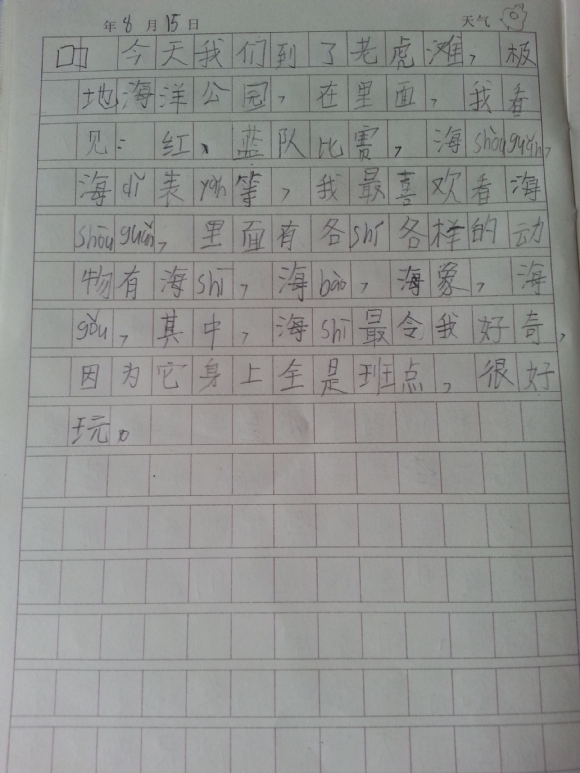 年8月15日 天气
今天我们到了老虎滩，极
地海洋公园，在里面，我看
见：红、蓝队比赛，海shòuguǎn，
海dǐ表yǎn等，我最喜欢看海
shòuguǎn，里面有各shì各样的动
物有海shī，海bào，海象，海
gǒu，其中，海shī最令我好奇，
因为它身上全是班点，很好
玩。